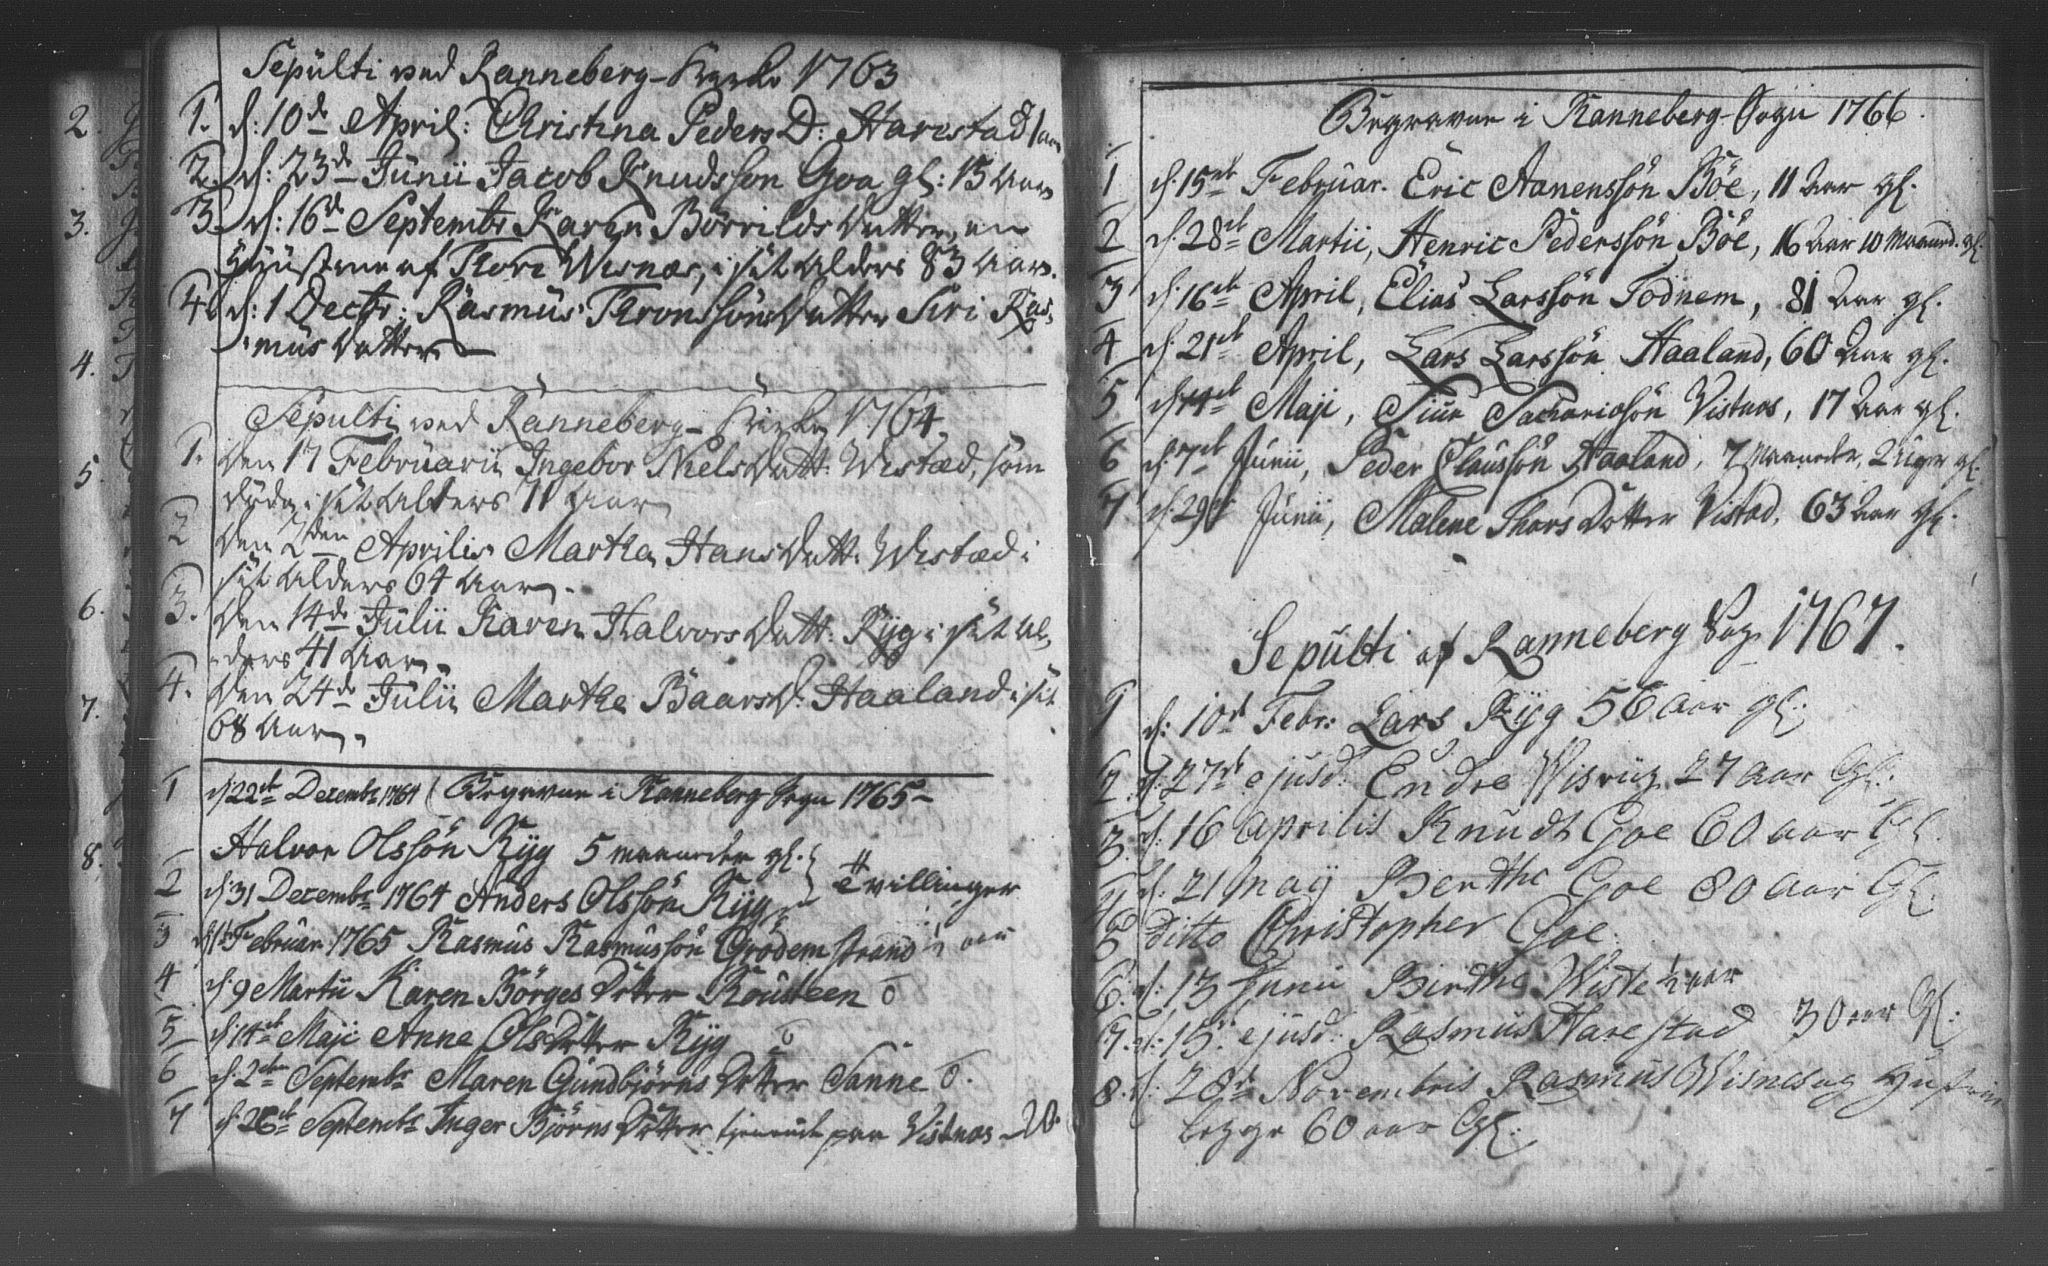 Sepulti ved Ranneberg-Kirke 1763
1. d: 10de April: Christina Peders D: Harestad 1 aar
2. d: 23de Junii Jacob Knudsson Goa gl: 15 Aar
3. d: 16de Septembr Karen Børrilds Datter, en
Huustrue af Tkore Wisnæs, i sit Alders 83 Aar.
4. d: 1 Decbr: Rasmus Thronssøns Datter Siri Ras-
mus Datter
Sepulti ved Ranneberg-Kirke 1764
1. Den 17 Februarii Ingebor Niels Datt: Wistæd, som
døde i sit Alters 71 Aar
2 Den 2den Aprilis Martha Hans Datt: Wistæd i
sit Alders 64 Aar.
3. Den 14de Julii Karen Halvors Datt: Ryg i sit Al-
ders 41 Aar.
4. Den 24de Julii Martha Baars D: Haaland i sit
68 Aar.
1 d 22de Decembr 1764 Begravne i Ranneberg Sogn 1765
Halvor Olssøn Ryg 5 maaneder gl. } tvillinger
2 d: 31 Decembr 1764 Anders Olssøn Ryg
3 Februar 1765 Rasmus Rasmussøn Grødem strand
4 d. 9 Martii Karen Børges Dotter Rousteen
5 d: 14de Maji Anne Ols Dotter Ryg
6 d. 2den Septembr Maren Gundbjørns Dotter Sanne
7 d 26de Septembr Inger Bjørns Dotter tjenende paa Vistnæs
Begravne i Ranneberg-Sogn 1766.
1 d. 15de Februar. Eric Aanenssøn Bøe, 11 Aar gl.
2 d. 28de Martii, Henric Pederssøn Bøe, 16 Aar 10 Maaned. gl.
3 d. 16de April, Elias Larssøn Todnem, 81 Aar gl.
4 d. 21de April, Lars Larssøn Haaland, 60 Aar gl.
5 d. 14de Maji, Siur Sachariasøn Vistnæs, 17 Aar gl.
6 d. 7de Junii, Peder Claussøn Haaland, 7 Maaneder, 2 Uger gl.
7 d. 29de Junii, Malene Thors Dotter Vistad, 63 Aar gl.
Sepulti af Ranneberg Sog. 1767.
1 d: 10d Febr: Lars Ryg 56 Aar gl:
2. d: 27d ejusd: Endre Wisvig 27 Aar Gl:
3. d. 16 Aprilis Knudt Goe 60 aar Gl.
4 d. 21 Maÿ Berthe Goe 80 Aar Gl.
5 Ditto Christopher Goe.
6. d: 13 Junii Birthe Wiste 1/2 aar
7. d: 15. ejusd: Rasmus Harestad 30 aar Gl:
8. d. 28d Novembris Rasmus Wisnes og Hustrue
begge 60 aar Gl:
2.
3.
4.
5.
6.
7.
8.